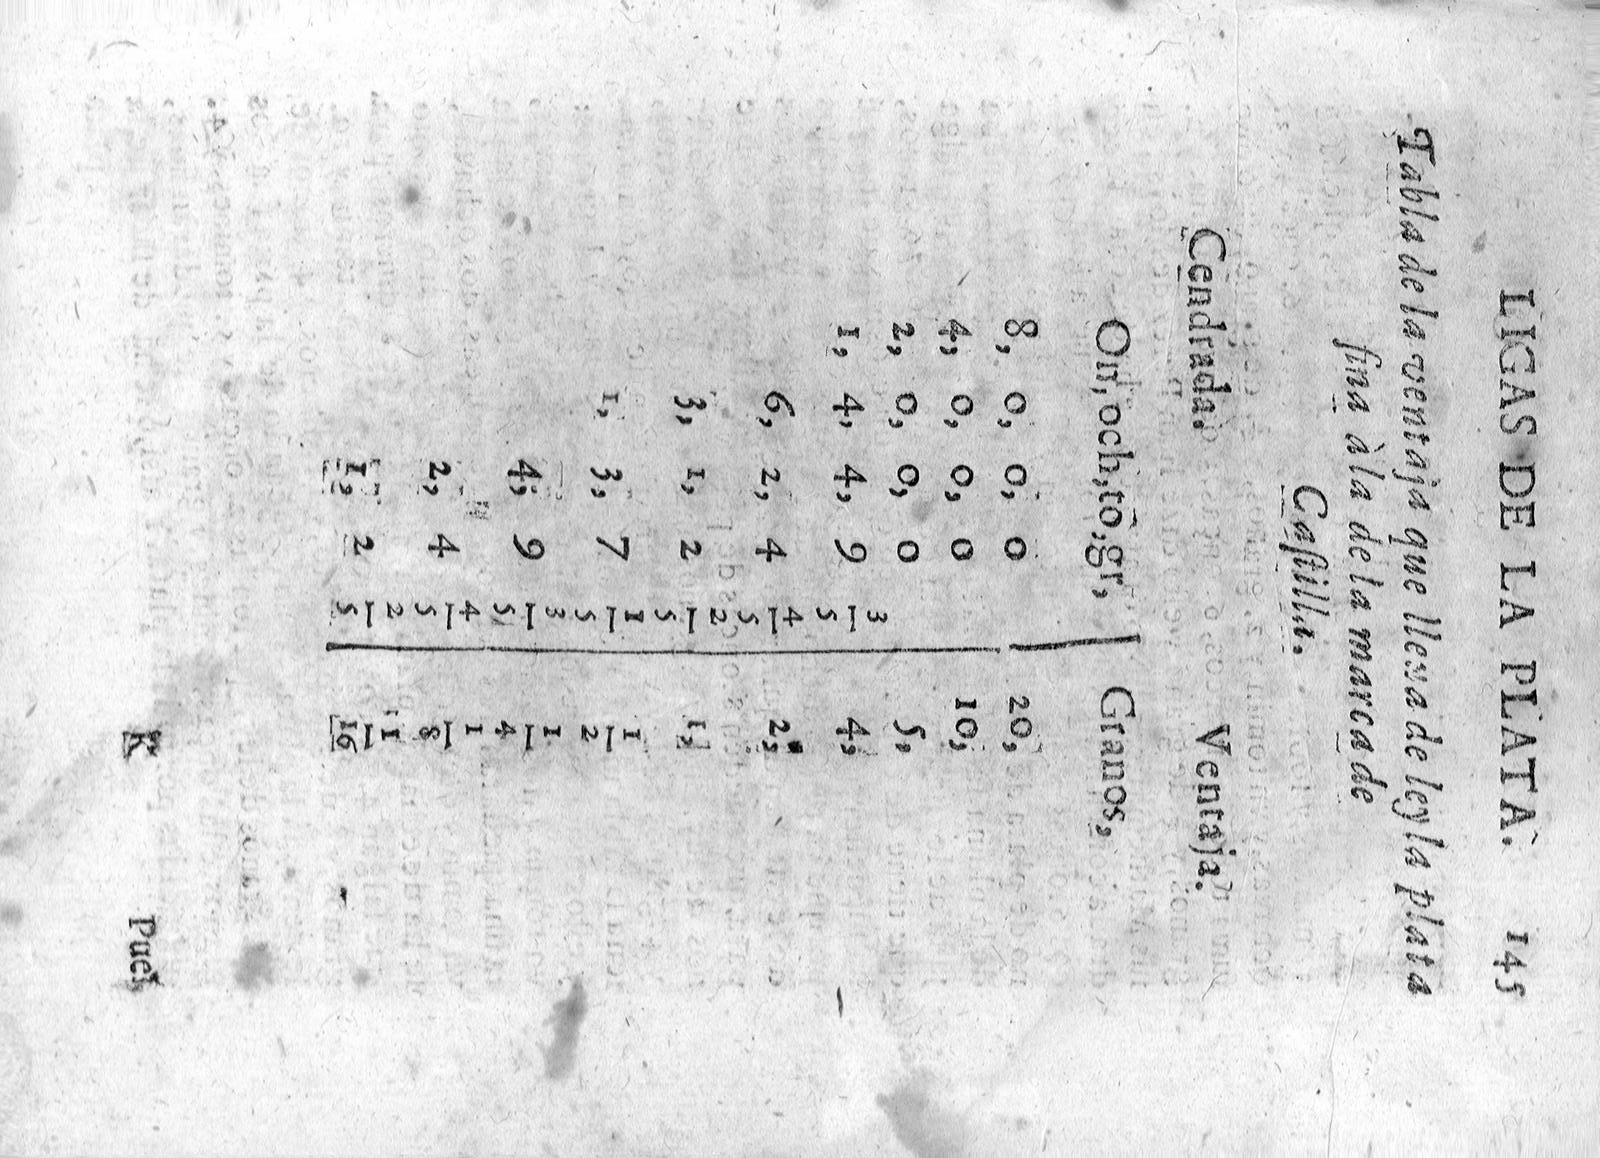 LIGAS DE LA PLATA. 145
Tabla de la ventaja que lleva de ley la plata
fina à la de la marca de
Caſtilla.
Cendrada. Ventaja.
On, och, tõ, gr, Granos,
8, 0, 0, 0 20,
4, 0, 0, 0 10,
2, 0, 0, 0 5,
1, 4, 4, 9 3/5 4,
6, 2, 4 4/5 2,
3, 1, 2 2/5 1,
1, 3, 7 1/5 1/2
4, 9 3/5 1/4
2, 4 4/5 1/8
1, 2 2/5 1/16
K Pues